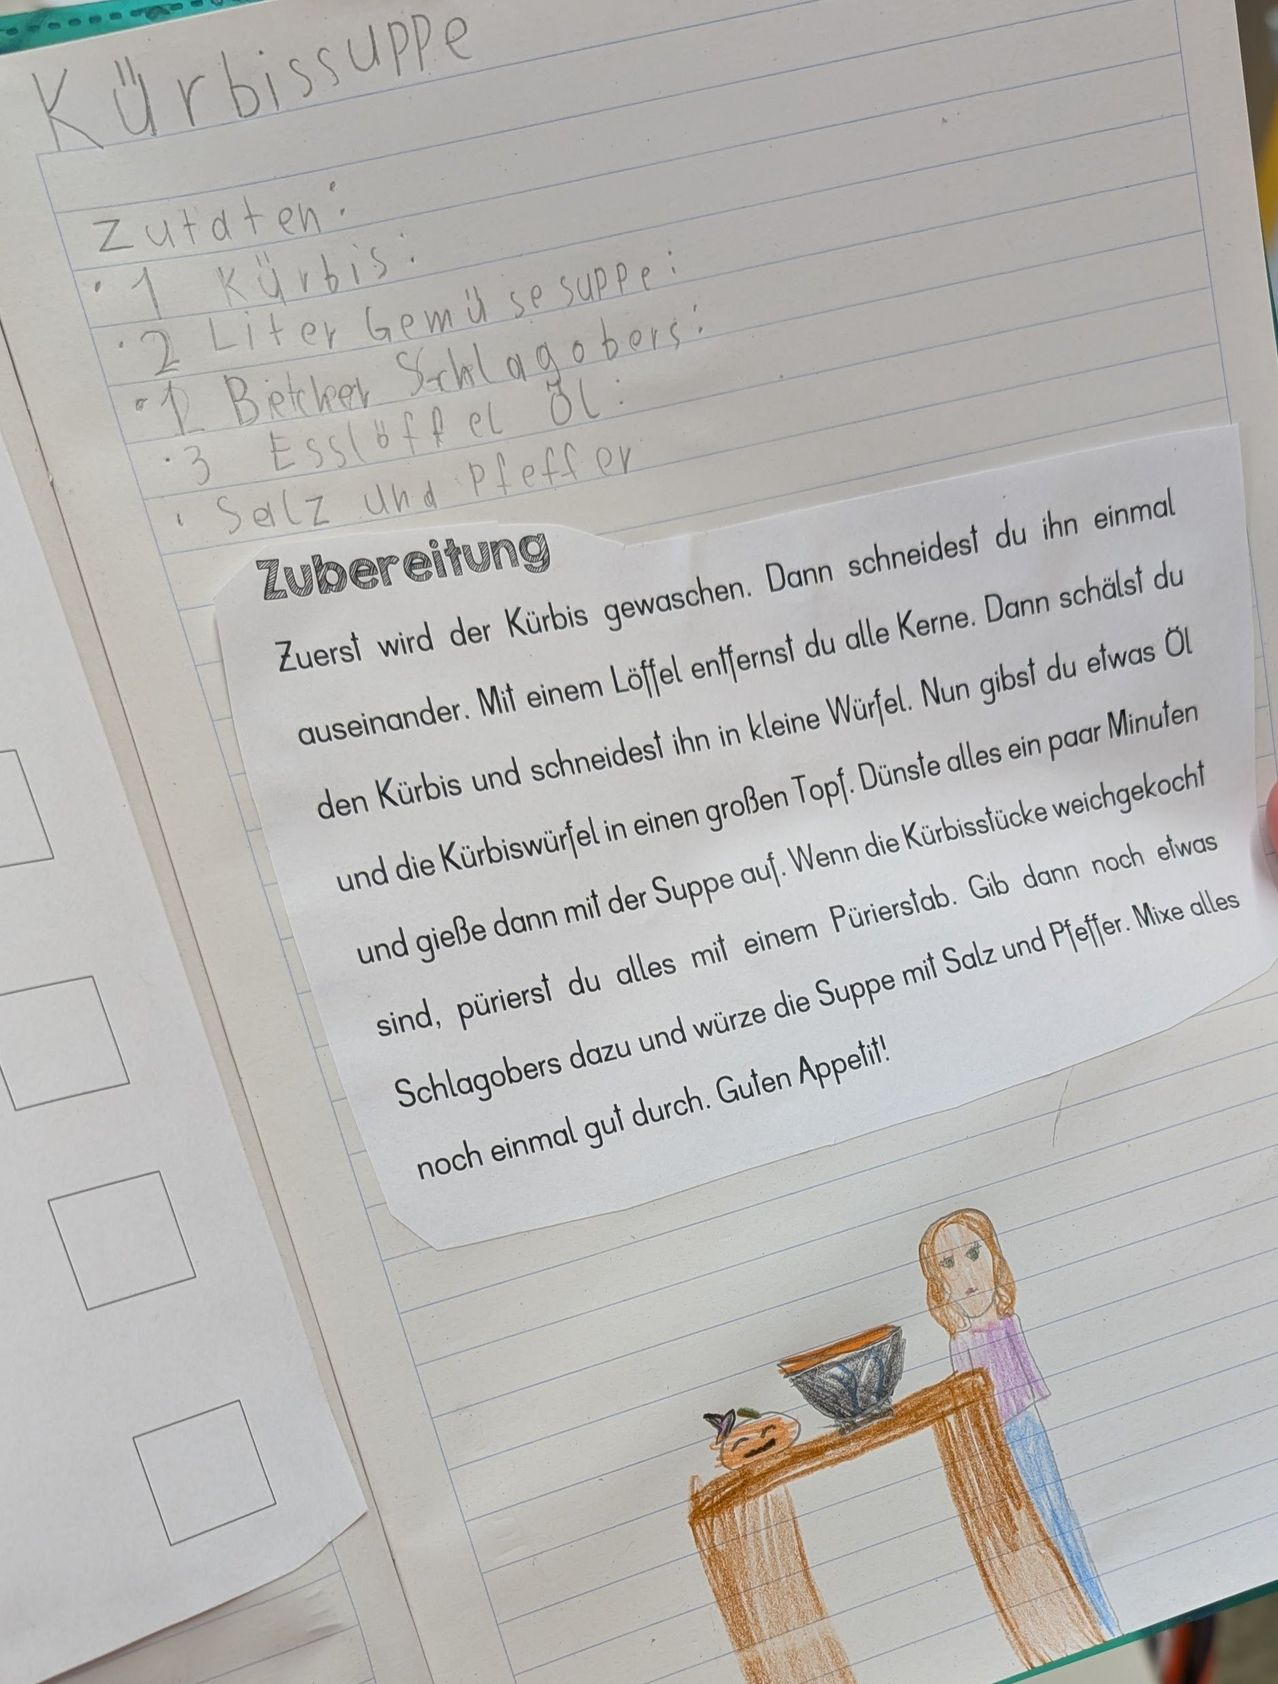 Kürbissuppe
Zutaten:
• 1 Kürbis:
• 2 Liter Gemüsesuppe:
• 1 Betcher Schlagobers:
• 3 Esslöffel Öl:
• Salz und Pfeffer
Zubereitung
Zuerst wird der Kürbis gewaschen. Dann schneidest du ihn einmal
auseinander. Mit einem Löffel entfernst du alle Kerne. Dann schälst du
den Kürbis und schneidest ihn in kleine Würfel. Nun gibst du etwas Öl
und die Kürbiswürfel in einen großen Topf. Dünste alles ein paar Minuten
und gieße dann mit der Suppe auf. Wenn die Kürbisstücke weichgekocht
sind, pürierst du alles mit einem Pürierstab. Gib dann noch etwas
Schlagobers dazu und würze die Suppe mit Salz und Pfeffer. Mixe alles
noch einmal gut durch. Guten Appetit!